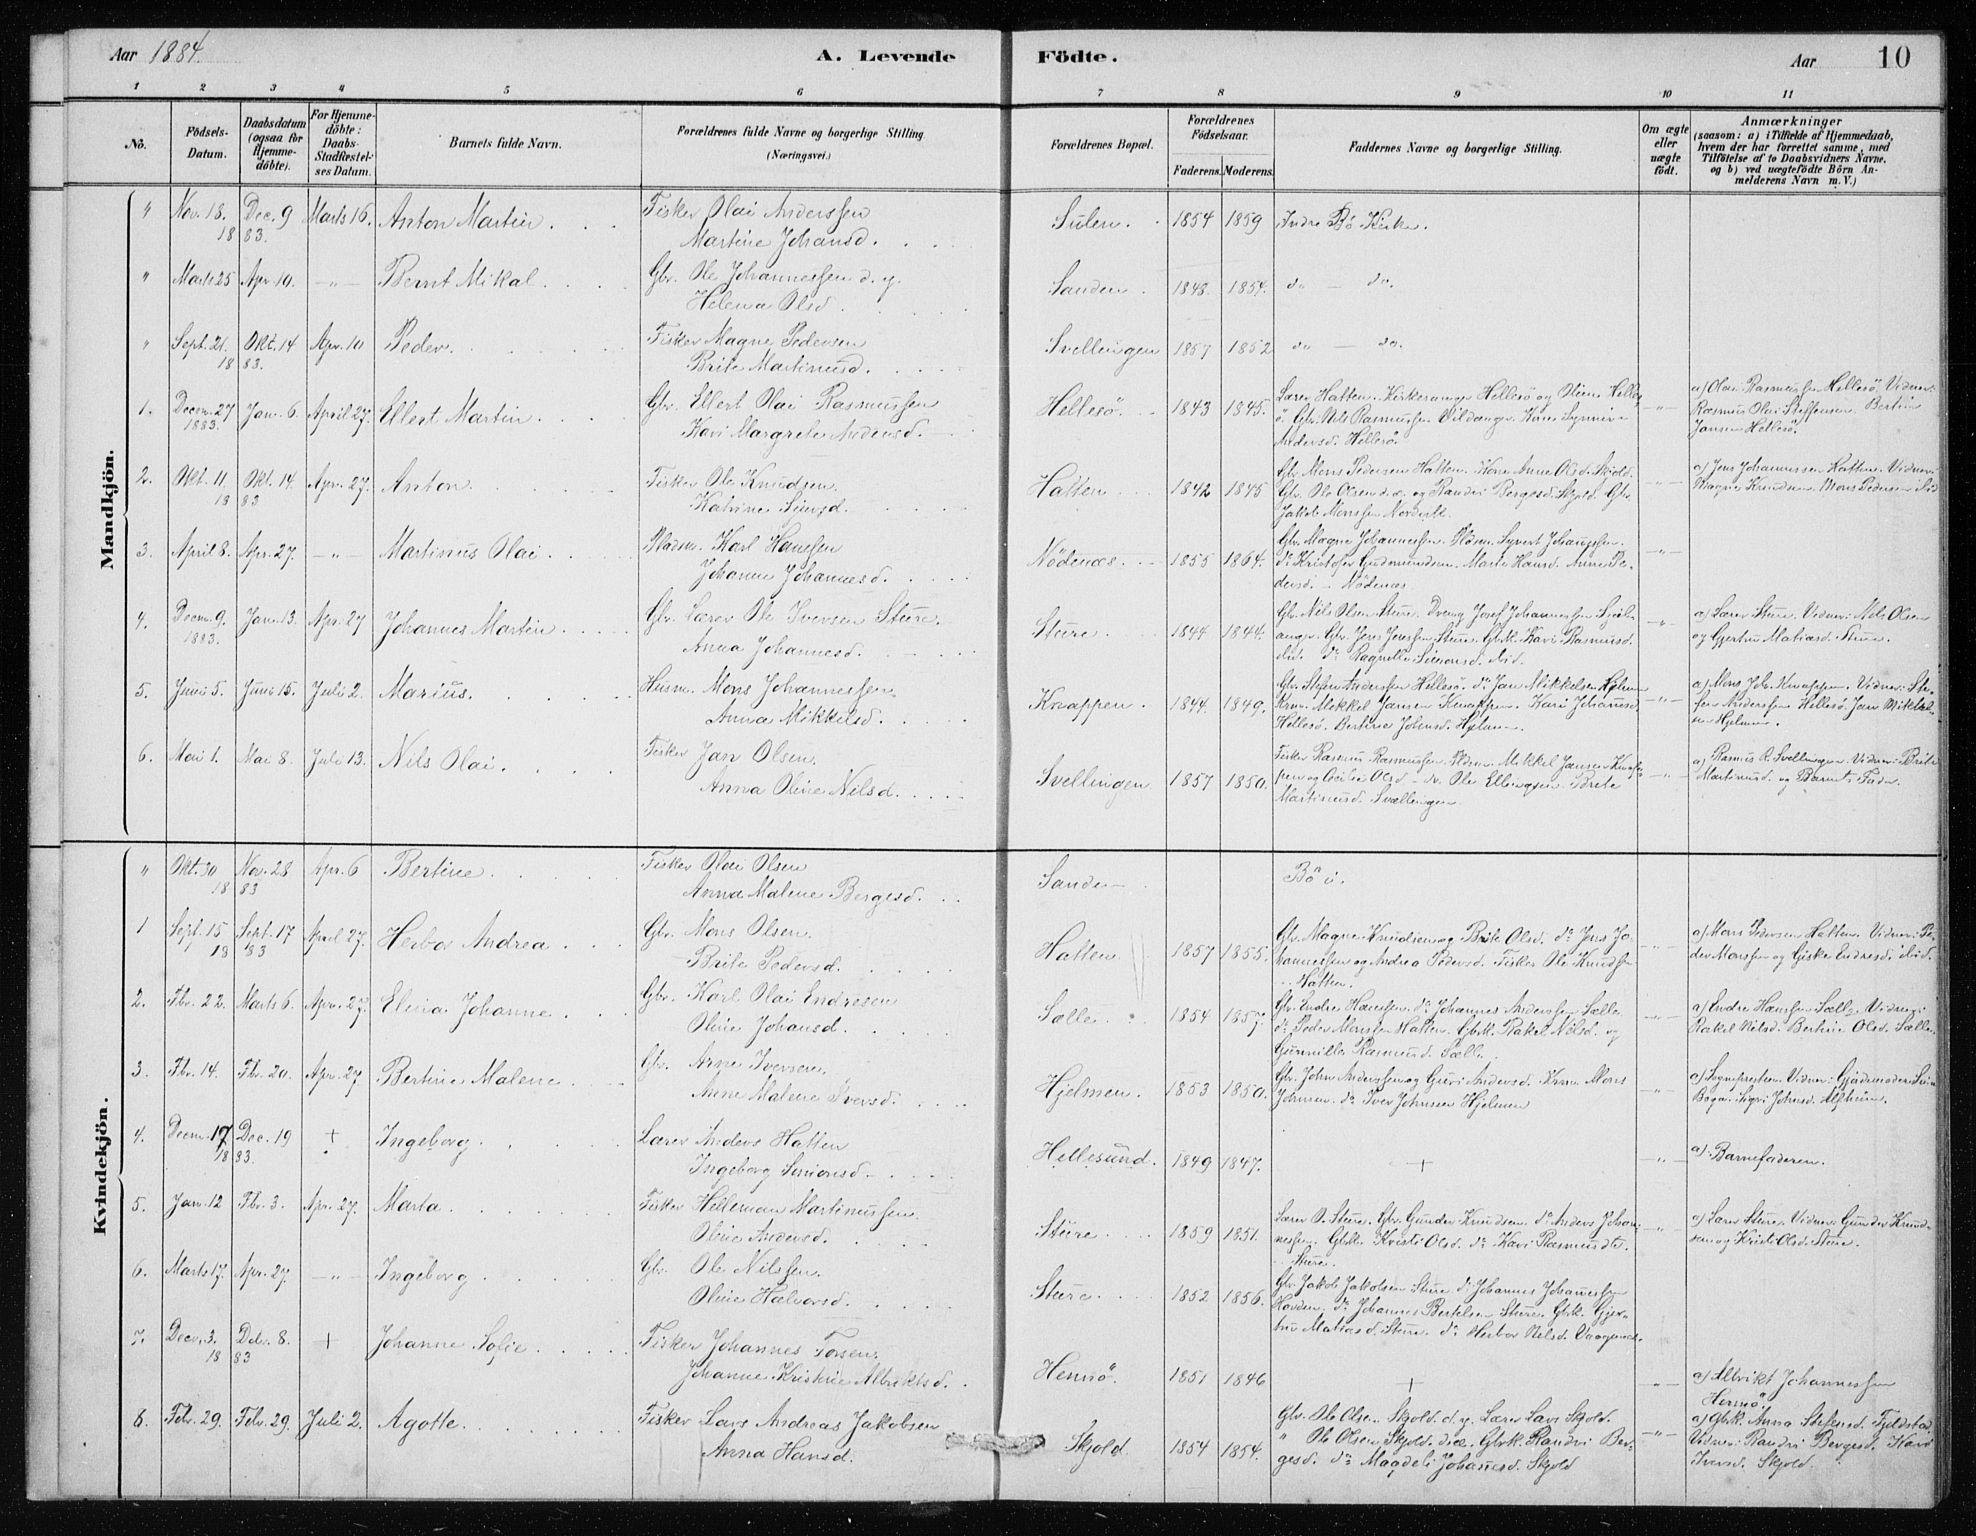 Aar 1884. A. Levende Födte. Aar 10
1 2 3 4 5 6 7 8 9 10 11
No. Födsels-Datum. Daabsdatum (ogsaa for Hjemmedöbte). For Hjemmedöbte: Daabs-Stadfæstelses Datum. Barnets fulde Navn. Forældrenes fulde Navne og borgerlige Stilling (Næringsvei.) Forældrenes Bopæl. Forældrenes Födselsaar. Faderens. Moderens. Faddernes Navne og borgerlige Stilling. Om ægte eller uægte födt. Anmærkninger (saasom: a) i Tilfælde af Hjemmedaab, hvem der har forrettet samme, med Tilföielse af to Daabsvidners Navne, og b) ved uægtefödte Börn Anmelderens Navn m. V.)
Mandkjön.
" Nov. 18. 18 Dec. 9 83. Marts 16. Anton Martin. Fisker Olai Anderssen
Martine Johansd. Sulen. 1854 1859 Indre Bö Kirke.
" Marts 25 Apr. 10. —"— Bernt Mikal. Gbr. Ole Johannessen d. y.
Helena Olsd. Sanden. 1848. 1854. do — do.
" Sept. 21. 18 Okt. 14 83. Apr. 10 Peder. Fisker Magne Pedersen
Brite Martinusd. Svellingen 1857 1852 do — do.
1. Decm. 27 1883. Jan. 6. April 27. Ellert Martin. Gbr. Ellert Olai Rasmussen
Kari Margrete Andersd. Hellesö. 1843 1845. Lærer Hatten. Kirkesanger Hellesö og Oline Helles-
ö. Gbr. Nils Rasmussen Vildanger. Kone
Andersd. Hellesö. —"— a) Olai Rasmussen Hellesö. Vidner:
Rasmus Olai Steffensen. Bertin
Jansen Hellesö.
2. Okt. 11. 18 Okt. 14. 83 Apr. 27. Anton. Fisker Ole Knudsen.
Katrine Simesd. Hatten. 1842 1845 Gbr. Mons Pedersen Hatten. Kone Anne Olsd. Skjold.
Gbr. Ole Olsen d. æ. og Randvi Bergesd. Skjold. Gbr.
Jakob Monssen —"— a) Jens Johannessen Hatten. Vidner:
Magne Knudsen. Mons Pedersen ibid
3. April 8. Apr. 27. —"— Martinus Olai. Pladsm. Karl Hanssen
Johanne Johannesd. Nödenæs. 1855 1864. Gbr. Magne Johannessen. Sjvert Johanssen.
do Kristofer Gudmundsen. Marte Hansd. Anne Pe-
dersd. Nödenæs —"—
4. Decm. 9. 1883. Jan. 13. Apr. 27 Johannes Martin. Gbr. Lærer Ole Iversen Sture.
Anna Johannesd. Sture. 1844 1844. Gbr. Nils Olsen Sture. Dreng Josef Johannessen
Gbr. Jens Jenssen Sture. Gbk. Kari Rasmusd.
ibid. do Ragnille Simonsd. ibid. —"— a) Lærer Sture. Vidner: Nils Olsen
og Gjertru Matiasd. Sture.
5. Juni 5. Juni 15. Juli 2. Marius. Husm. Mons Johannessen.
Anna Mikkelsd. Knappen. 1844. 1849. Gbr. Stefen Anderssen Hellesö. do Jan Mikkelsen Hjelmen
Mikkel Jansen Knappen. Kari Johannesd
Hellesö. Bertine Johnsd. Hjelmen. —"— a) Mons Joh. Knappen. Vidner: Ste-
fen Anderssen Hellesö. Jan Mikkel-
sen Hjelmen.
6. Mai 1. Mai 8. Juli 13. Nils Olai. Fisker Jan Olsen.
Anna Oline Nilsd. Svellingen 1857 1850. Fisker Rasmus Rasmussen. Mikkel Jansen Knap-
pen og Cecilia Olsd. Ole Ellingsen Brite
Martinusd. Svællingen —"— a) Rasmus R. Svellingen. Vidner: Brite
Martinusd. og Barnets Fader.
Kvindekjön.
" Okt. 30 18 Nov. 28 83 Apr. 6 Bertine. Fisker Olai Olsen
Anna Malene Bergesd. Sanden Bö i.
1 Sept. 15 18 Sept. 17 83 April 27. Herbor Andrea. Gbr. Mons Olsen.
Brite Pedersd. Hatten. 1857 1855. Gbr. Magne Knudsen og Brite Olsd. do Jens Jo-
hannessen og Andrea Pedersd. Fisker Ole Knudsen
Hatten. —"— a) Mons Pedersen Hatten. Vidner: Pe-
der Monssen og Giske Endresd. ibid.
2. Fbr. 22. Marts 6. Apr. 27. Elina Johanne. Gbr. Karl Olai Endresen
Oline Johansd. Sælle. 1854 1857 Gbr. Endre Hanssen. do Johannes Anderssen Sælle.
do Peder Monssen Hatten. Gbk. Rakel Nilsd. og
Gunnille Rasmusd. Sælle. —"— a) Endre Hanssen Sælle. Vidner:
Rakel Nilsd. Bertine Olsd. Sælle.
3. Fbr. 14. Fbr. 20. Apr. 27 Bertine Malene. Gbr. Arne Iversen.
Anne Malene Iversd. Hjelmen. 1853 1850. Gbr. John Anderssen og Guri Andersd. Mons
Johnsen. do Iver Johnsen Hjelmen —"— a) Sognepresten. Vidner: Gjordmoder
Sigri Johnsd.
4. Decm. 17. 18 Dec. 19 83. + Ingeborg. Lærer Anders Hatten
Ingeborg Simonsd. Hellesund. 1849 1847. + —"— a) Barnefaderen.
5. Jan. 12 Fbr. 3. Apr. 27. Marta. Fisker Helleman Martinussen.
Oline Andersd. Sture. 1859 1851. Lærer O. Sture. Gbr. Gunder Knudsen. do Anders Johan-
nessen. Gbk. Kristi Olsd. do Kari Rasmusd.
Sture. —"— a) Lærer Sture. Vidner: Gunder Knud-
sen og Kristi Olsd. Sture.
6. Marts 17. Apr. 27. —"— Ingeborg. Gbr. Ole Nilssen.
Oline Halvorsd. Sture. 1852 1856. Gbr. Jakob Jakobsen Sture. do Johannes Johannessen
do Johannes Bertelsen Sture. Gbk. Gjer-
tru Matiasd. Sture. do Herbor Nilsd.
7. Decr. 3. 18 Decbr. 8. 83 + Johanne Sofie. Fisker Johannes Torsen.
Johanne Kristine Albriktsd. Hennö. 1851 1846 + —"— a) Albrikt Johannessen
Hernö.
8. Febr. 29. Febr. 29. Juli 2. Agotte. Fisker Lars Andreas Jakobsen
Anna Hansd. Skjold. 1854 1854. Gbr. Ole Olsen Skjold. d. y. Lærer Lars Skjold.
" Ole Olsen Skjold. d. æ. Gbrk. Randvi Ber-
gesd. do Magdeli Johannesd. Skjold —"— a) Gbk. Anna Stefensd. Fjeldstad.
Vidner: Randvi Bergesd. Kari
Iversd. Skjold.